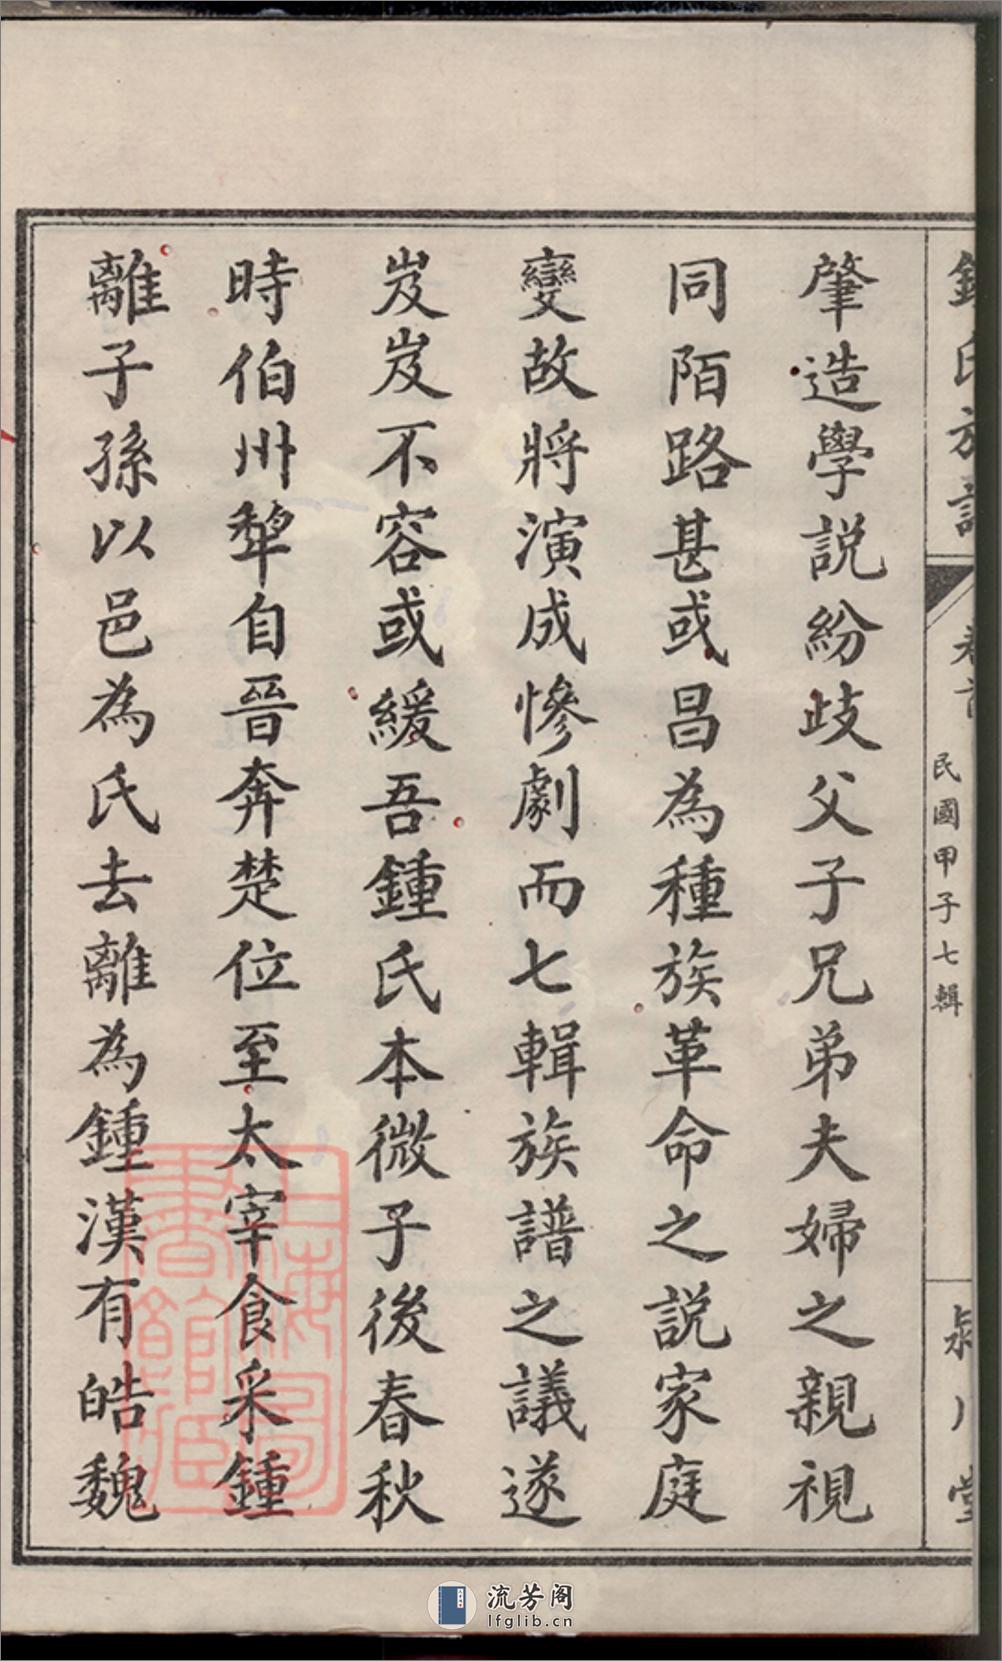 鍾氏族譜
卷首
民國甲子七輯
潁川堂
肇造學説紛歧父子兄弟夫婦之親視
同陌路甚或昌為種族革命之説家庭
變故將演成慘劇而七輯族譜之議遂
岌岌不容或緩吾鍾氏本微子後春秋
時伯州犂自晉奔楚位至太宰食采鍾
離子孫以邑為氏去離為鍾漢有皓魏
上海圖書館藏
流芳阁
lfglib.cn